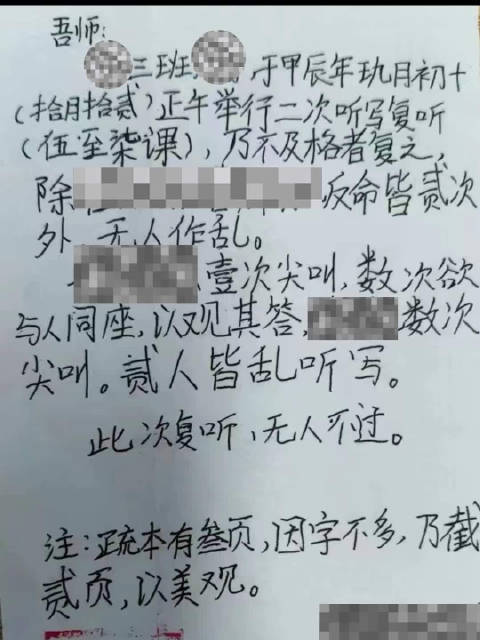 吾师:
三班,于甲辰年玖月初十
(拾月拾贰)正午举行二次听写复听
(伍至柒课),乃不及格者复之,
除反命皆贰次
外,无人作乱。
壹次尖叫,数次欲
与人同座,以观其答,数次
尖叫。贰人皆乱听写。
此次复听,无人不过。
注:疏本有叁页,因字不多,乃截
贰页,以美观。